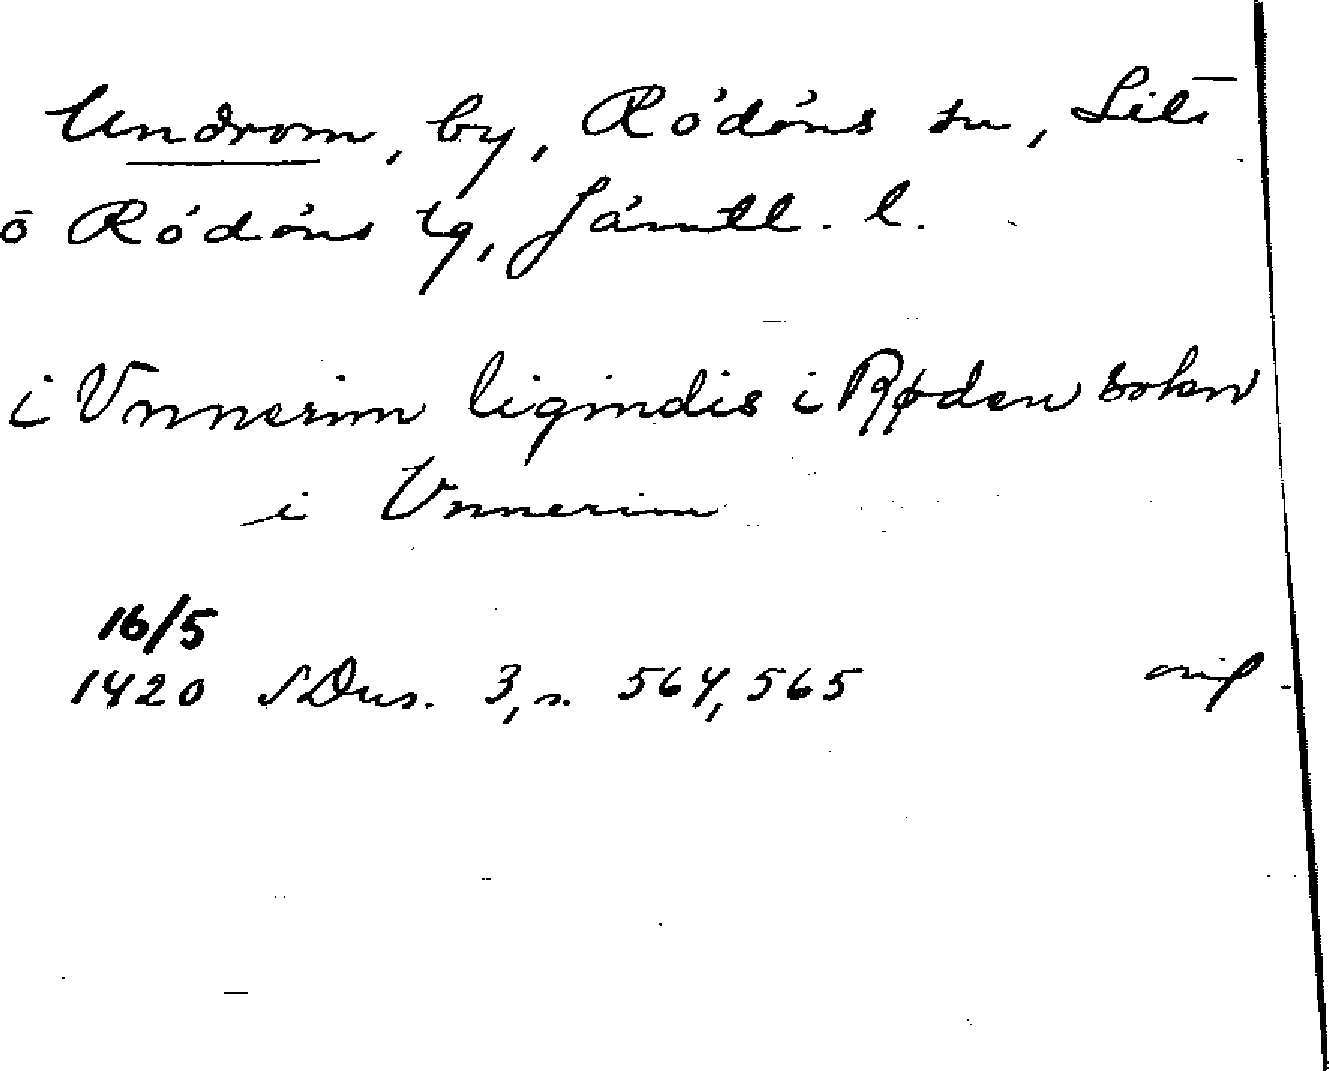 Undrom, by, Rödöns sn, Lits
o Rödöns tg, Jämtl. l.
i Vnnerim ligindis i Røden sokn
i Vnnerim
16/5
1420 SDns. 3, s. 564, 565 orig